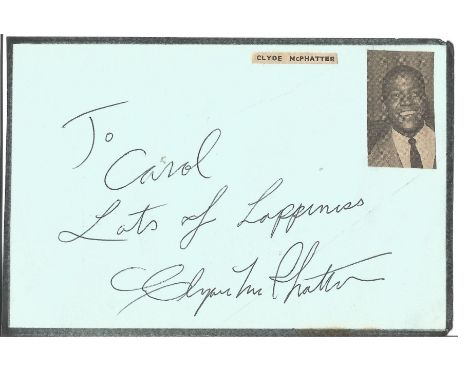 CLYDE McPHATTER
To
Carol
Lots of Happiness
Clyde McPhatter